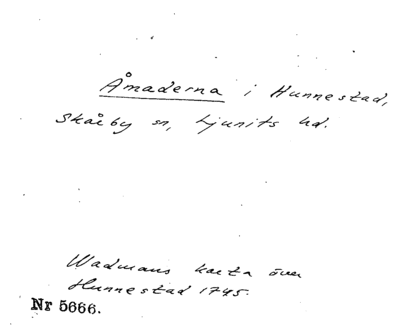 Åmaderna i Hunnestad,
Skårby sn, Ljunits hd.
Wadmans karta över
Hunnestad 1745.
Nr 5666.